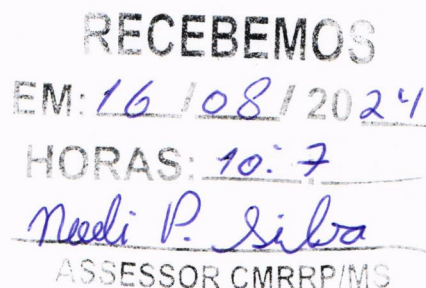 RECEBEMOS
EM: 16 / 08 / 2024
HORAS: 10:7
P. Silva
ASSESSOR CMRRP/MS